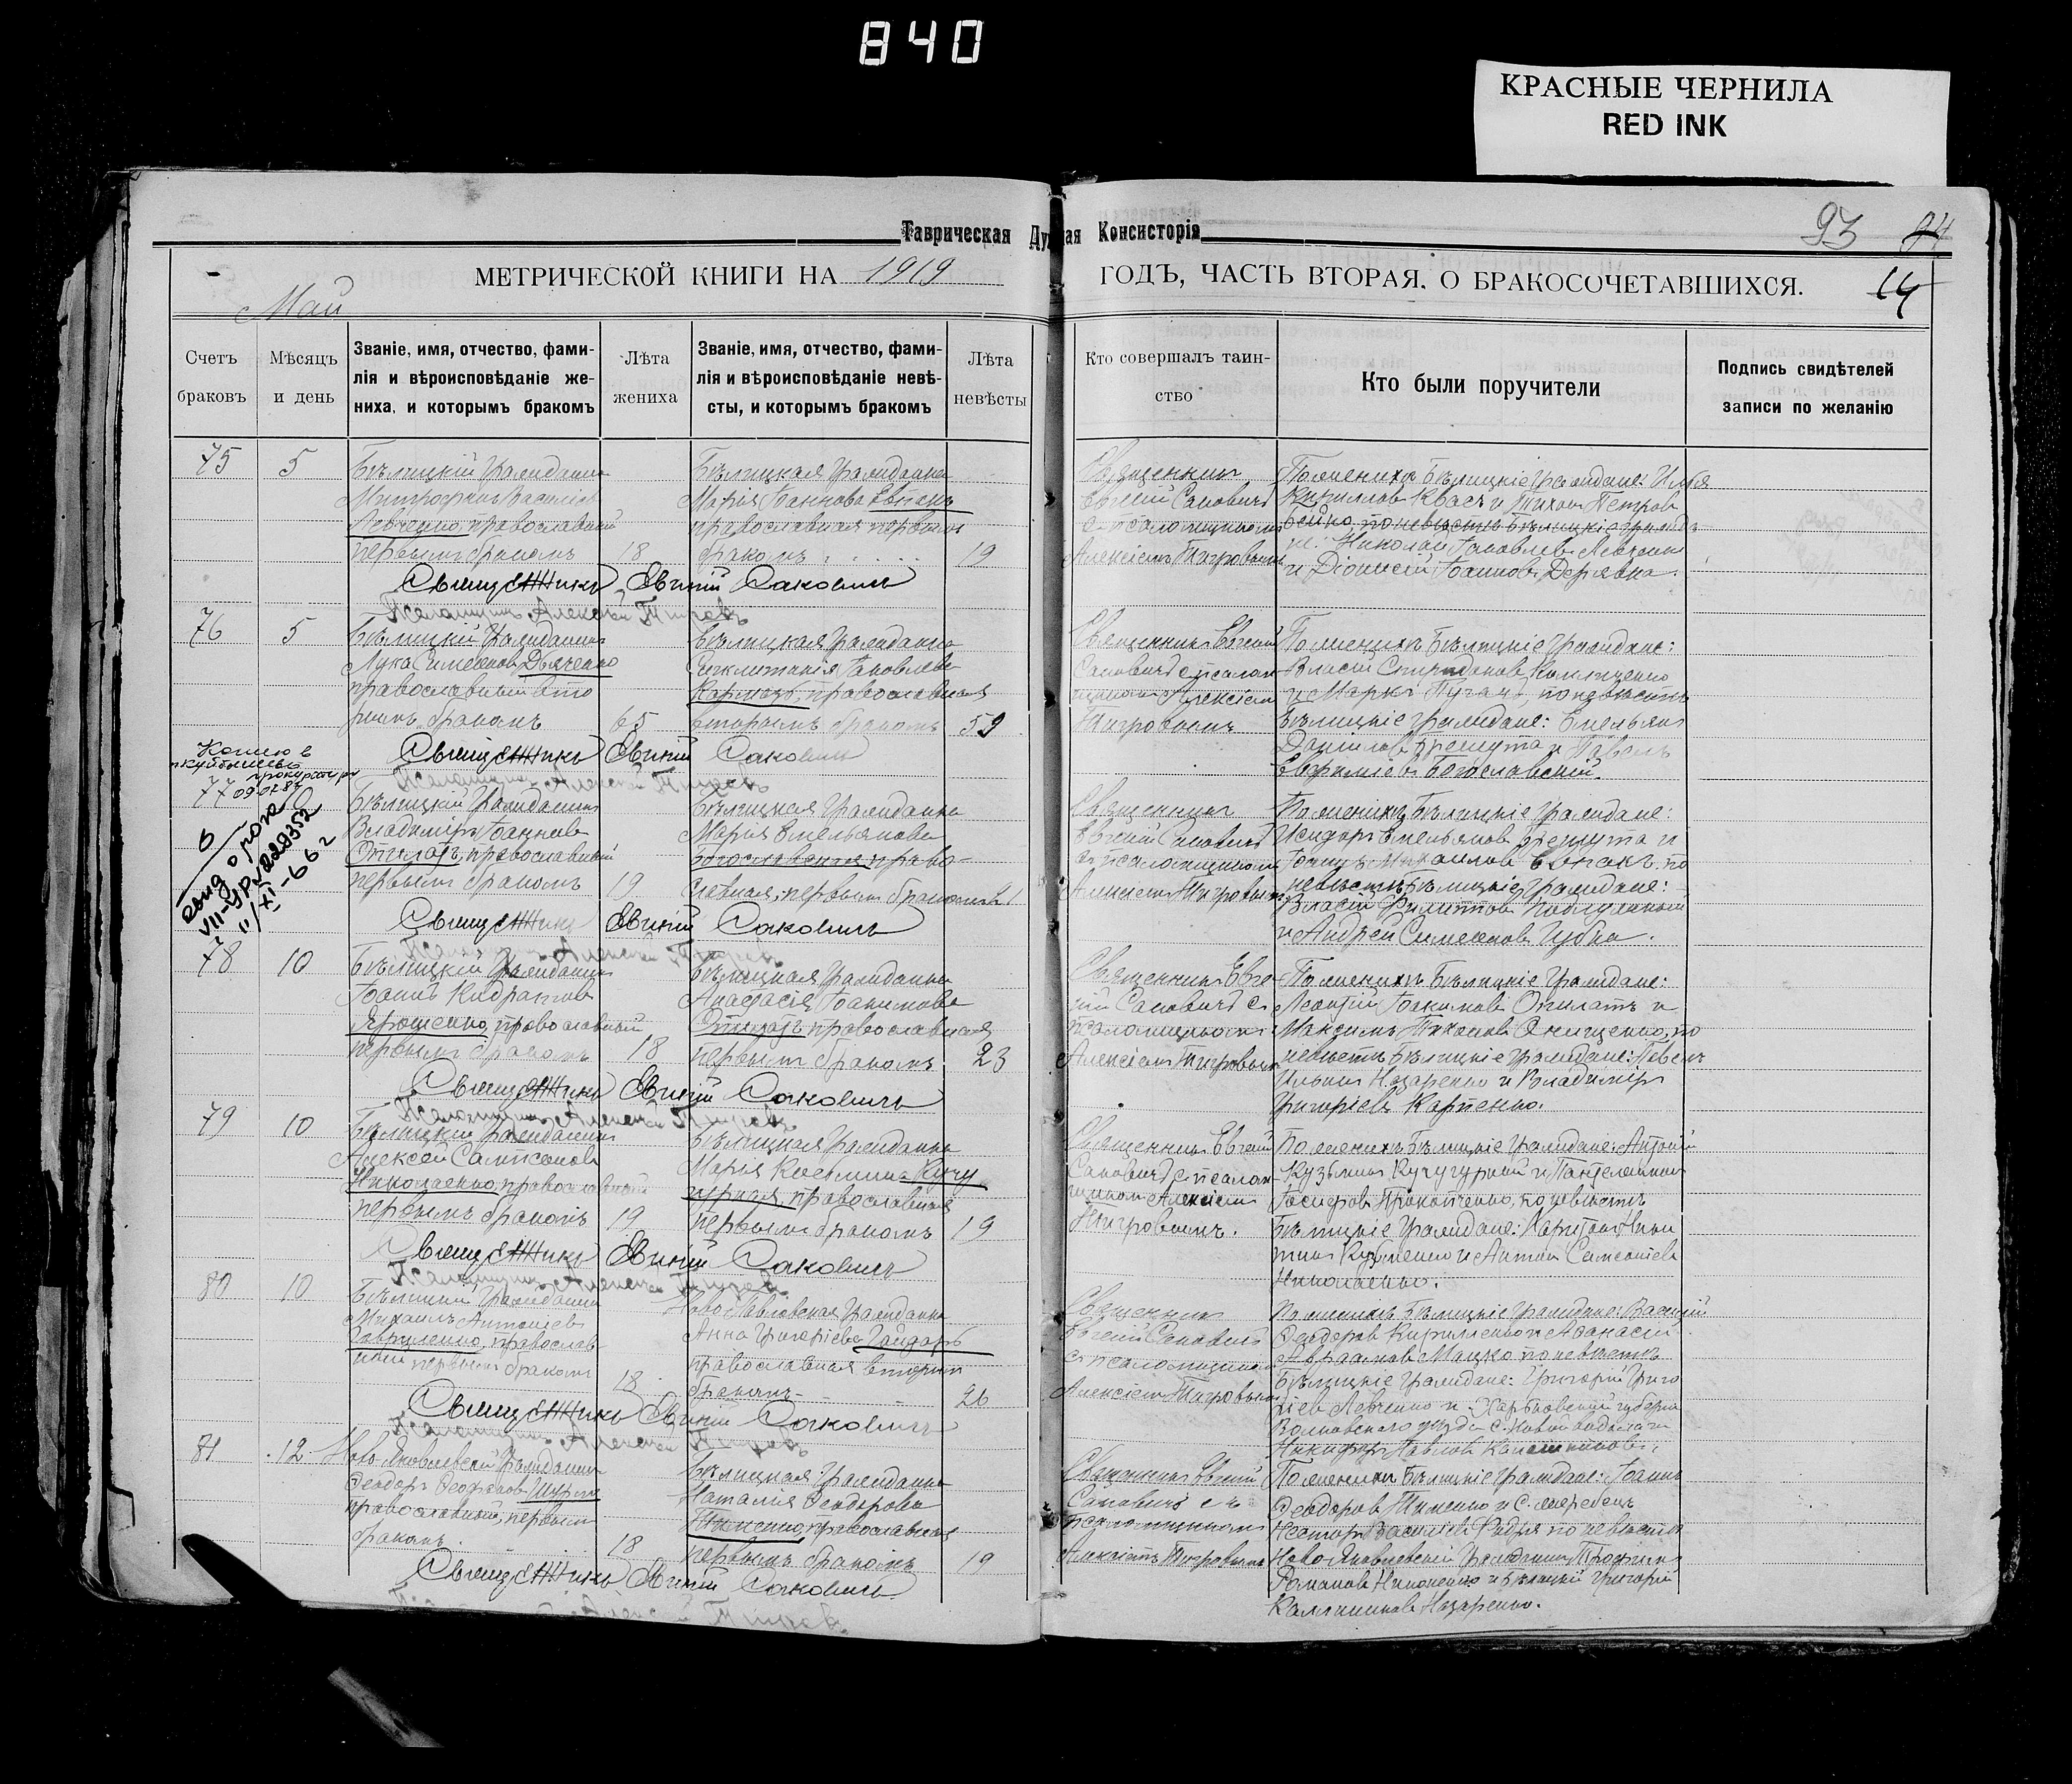 840
КРАСНЫЕ ЧЕРНИЛА
RED INK
93 84
Таврическая Ду ая Консисторія
МЕТРИЧЕСКОЙ КНИГИ НА 1919 ГОДЪ, ЧАСТЬ ВТОРАЯ, О БРАКОСОЧЕТАВШИХСЯ.
14
Май
Счетъ браковъ
Мѣсяцъ и день
Званіе, имя, отчество, фами-
лія и вѣроисповѣданіе же-
ниха, и которымъ бракомъ
Лѣта жениха
Званіе, имя, отчество, фами-
лія и вѣроисповѣданіе невѣ-
сты, и которымъ бракомъ
Лѣта невѣсты
Кто совершалъ таин-
ство
Кто были поручители
Подпись свидѣтелей
записи по желанію
75
5
Бѣлицкій гражданинъ
Митрофанъ Василіевъ
Левченко, православный
первымъ бракомъ
18
Бѣлицкая гражданка
Марія Іоаннова Евтакъ
православная первымъ
бракомъ
19
Священникъ
Евгеній Саковичъ
съ псаломщикомъ
Алексіемъ Тигровымъ
По женихѣ Бѣлицкіе граждане: Илья
Кирилловъ Квасъ и Тихонъ Петровъ
Бейко, по невѣстѣ Бѣлицкіе гражда
не: Николай Іаковлевъ Левченко
и Діонисій Іоанновъ Деревка.
Священникъ Евгеній Саковичъ
Псаломщикъ Алексей Тигровъ
76
5
Бѣлицкій гражданинъ
Лука Симеоновъ Дьяченко
православный вто
рымъ бракомъ
65
Бѣлицкая гражданка
Синклитикія Іаковлева
Кармазъ, православная
вторымъ бракомъ
59
Священникъ Евгеній
Саковичъ съ псалом
щикомъ Алексіемъ
Тигровымъ
По женихѣ Бѣлицкіе граждане:
Власій Спиридоновъ Колтченко
и Маркъ Пугачъ, по невѣстѣ
Бѣлицкіе граждане: Емельянъ
Даніиловъ Прешута и Павелъ
Евфиміевъ Богославскій.
Священникъ Евгеній Саковичъ
Псаломщикъ Алексей Тигровъ
Копию в
прокуратуру
09.07.87
77
о роже
VII-УР №229352
11/XI-66 г
Бѣлицкій гражданинъ
Владиміръ Іоанновъ
Опилатъ, православный
первымъ бракомъ
19
Бѣлицкая гражданка
Марія Емельянова
Богославская, право-
славная, первымъ бракомъ
21
Священникъ
Евгеній Саковичъ
съ псаломщикомъ
Алексіемъ Тигровымъ
По женихѣ Бѣлицкіе граждане:
Исидоръ Емельяновъ Прешута и
Іоаннъ Михаиловъ Евтакъ, по
невѣстѣ Бѣлицкіе граждане:
Власій Филипповъ
и Андрей Симеоновъ Губка.
Священникъ Евгеній Саковичъ
Псаломщикъ Алексей Тигровъ
78
10
Бѣлицкій гражданинъ
Іоаннъ Кидратовъ
Ярошенко, православный
первымъ бракомъ
18
Бѣлицкая гражданка
Анастасія Іоакимова
Опилатъ православная
первымъ бракомъ
23
Священникъ Евге
ній Саковичъ съ
псаломщикомъ
Алексіемъ Тигровымъ
По женихѣ Бѣлицкіе граждане:
Леонтій Іоакимовъ Опилатъ и
Максимъ Тихоновъ Онищенко, по
невѣстѣ Бѣлицкіе граждане: Павелъ
Ильинъ Назаренко и Владиміръ
Григоріевъ Карпенко.
Священникъ Евгеній Саковичъ
Псаломщикъ Алексей Тигровъ
79
10
Бѣлицкій гражданинъ
Алексей Сампсоновъ
Николаенко, православный
первымъ бракомъ
19
Бѣлицкая гражданка
Марія Косьмина Кучу
гурная, православная
первымъ бракомъ
19
Священникъ Евгеній
Саковичъ съ псалом
щикомъ Алексіемъ
Тигровымъ.
По женихѣ Бѣлицкіе граждане: Антоній
Кузьминъ Кучугурный и Пантелеимонъ
Іосифовъ Прокопченко, по невѣстѣ
Бѣлицкіе граждане: Харитонъ Ники
тинъ Кузьменко и Антон Самсоніевъ
Николаенко.
Священникъ Евгеній Саковичъ
Псаломщикъ Алексей Тигровъ
80
10
Бѣлицкій гражданинъ
Михаилъ Антоніевъ
Гавриленко, православ-
ный первымъ бракомъ
18
Ново-Павловская гражданка
Анна Григоріева Гайдаръ
православная вторымъ
бракомъ
26
Священникъ
Евгеній Саковичъ
съ псаломщикомъ
Алексіемъ Тигровымъ
По женихѣ Бѣлицкіе граждане: Василій
Ѳеодоровъ Кириленко и Аѳанасій
Авраамовъ Мацко по невѣстѣ
Бѣлицкіе граждане: Григорій Григо
ріевъ Левченко и Харьковской губерніи
Волковскаго уезда с. Новой Водолаги
Никифоръ Павловъ
Священникъ Евгеній Саковичъ
Псаломщикъ Алексей Тигровъ
81
12
Ново-Яковлевскій гражданинъ
Ѳеодоръ Шурга
православный, первымъ
бракомъ.
18
Бѣлицкая гражданка
Наталія Ѳеодорова
Тименко, православная
первымъ бракомъ
19
Священникъ Евгеній
Саковичъ съ
псаломщикомъ
Алексіемъ Тигровымъ
По женихѣ Бѣлицкіе граждане: Іоаннъ
Ѳеодоровъ Тименко и с. Жеребецъ
Несторъ Василіевъ Фидря по невѣстѣ
Ново-Яковлевскій гражданинъ Трофимъ
Романовъ Никоненко и Бѣлицкій Григорій
Каллиниковъ Назаренко.
Священникъ Евгеній Саковичъ
Псаломщикъ Алексей Тигровъ